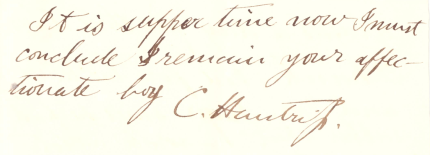 It is supper time now I must
conclude I remain your affec-
tionate boy C.